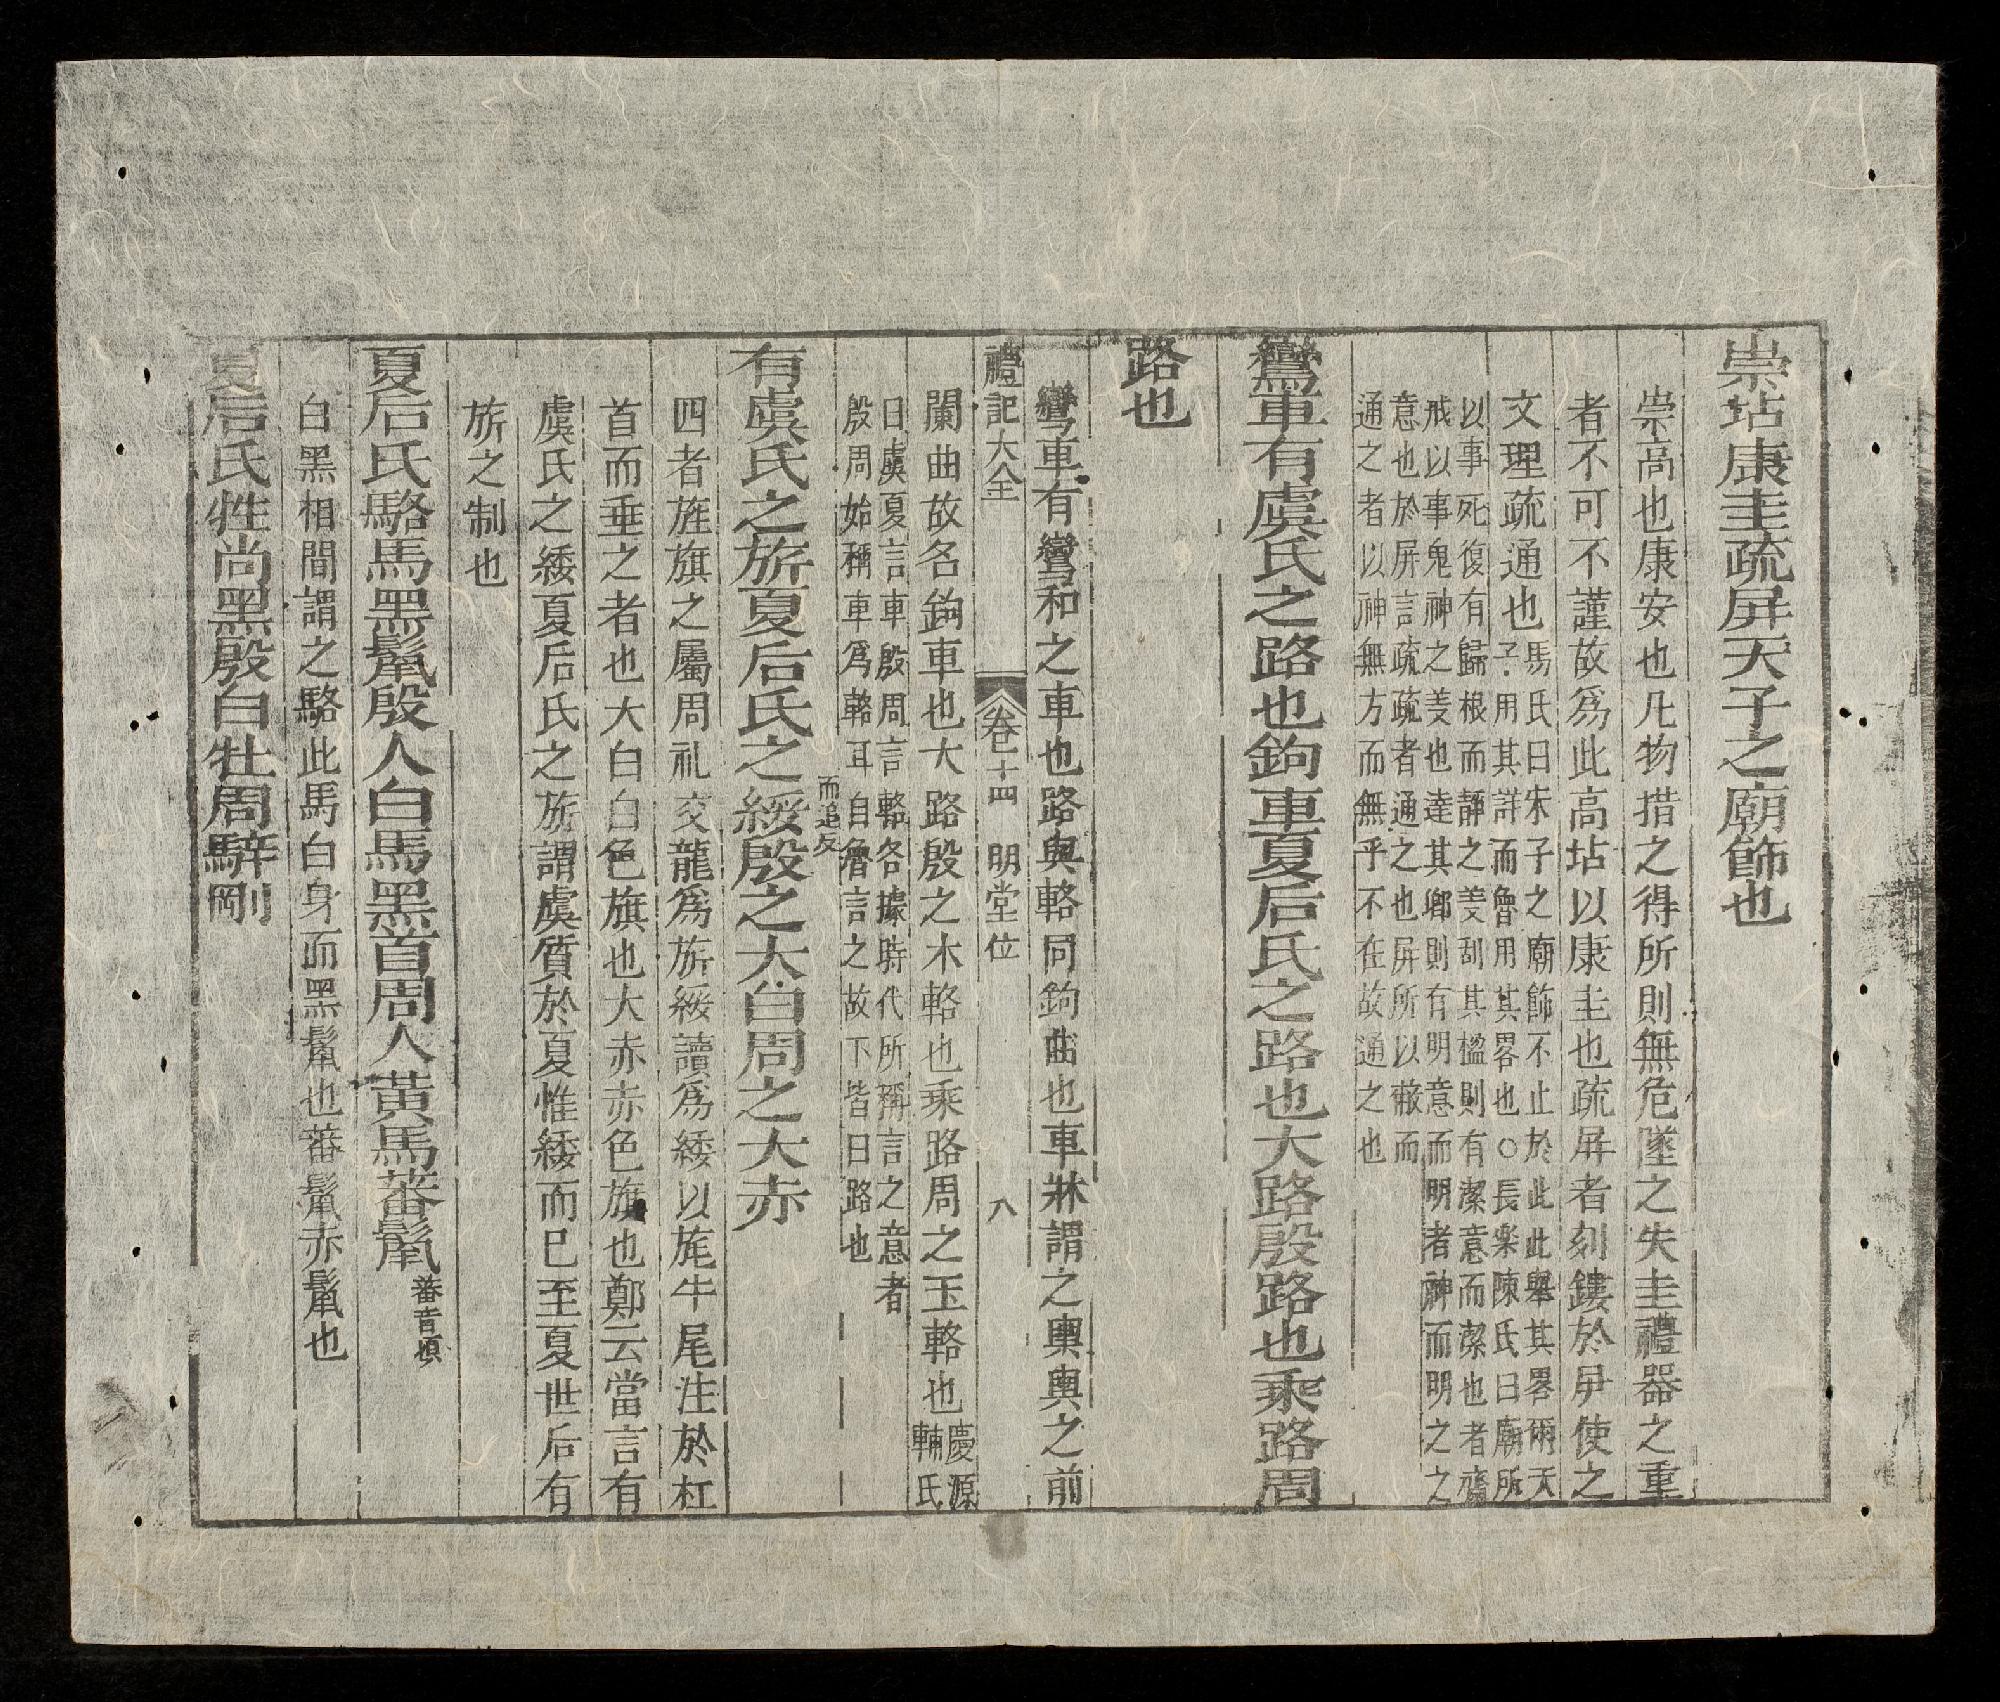 崇坫康圭疏屏天子之廟飾也
崇高也康安也凡物措之得所則無危墜之失圭禮器之重
者不可不謹故爲此高坫以康圭也疏屏者刻鏤於屏使之
文理疏通也馬氏曰宋子之廟飾不止於此此舉其畧爾天
子用其詳而魯用其畧也○長樂陳氏曰廟所
以事死復有歸根而靜之義刮其楹則有潔意而潔也者齋
戒以事鬼神之義也達其鄉則有明意而明者神而明之之
意也於屏言疏疏者通之也屏所以蔽而
通之者以神無方而無乎不在故通之也
鸞車有虞氏之路也鉤車夏后氏之路也大路殷路也乘路周
路也
鸞車有鸞和之車也路與輅同鉤曲也車牀謂之輿輿之前
禮記大全 卷十四 明堂位 八
闌曲故名鉤車也大路殷之木輅也乘路周之玉輅也慶源
輔氏
曰虞夏言車殷周言輅各據時代所稱言之意者
殷周始稱車爲輅耳自魯言之故下皆曰路也
有虞氏之旂夏后氏之綏而追反殷之大白周之大赤
四者旌旗之屬周礼交龍爲旂綏讀爲緌以旄牛尾注於杠
首而垂之者也大白白色旗也大赤赤色旗也鄭云當言有
虞氏之緌夏后氏之旂謂虞質於夏惟緌而巳至夏世后有
旂之制也
夏后氏駱馬黑鬣殷人白馬黑首周人黃馬蕃鬣蕃音煩
白黑相間謂之駱此馬白身而黑鬣也蕃鬣赤鬣也
夏后氏牲尚黑殷白牡周騂剛